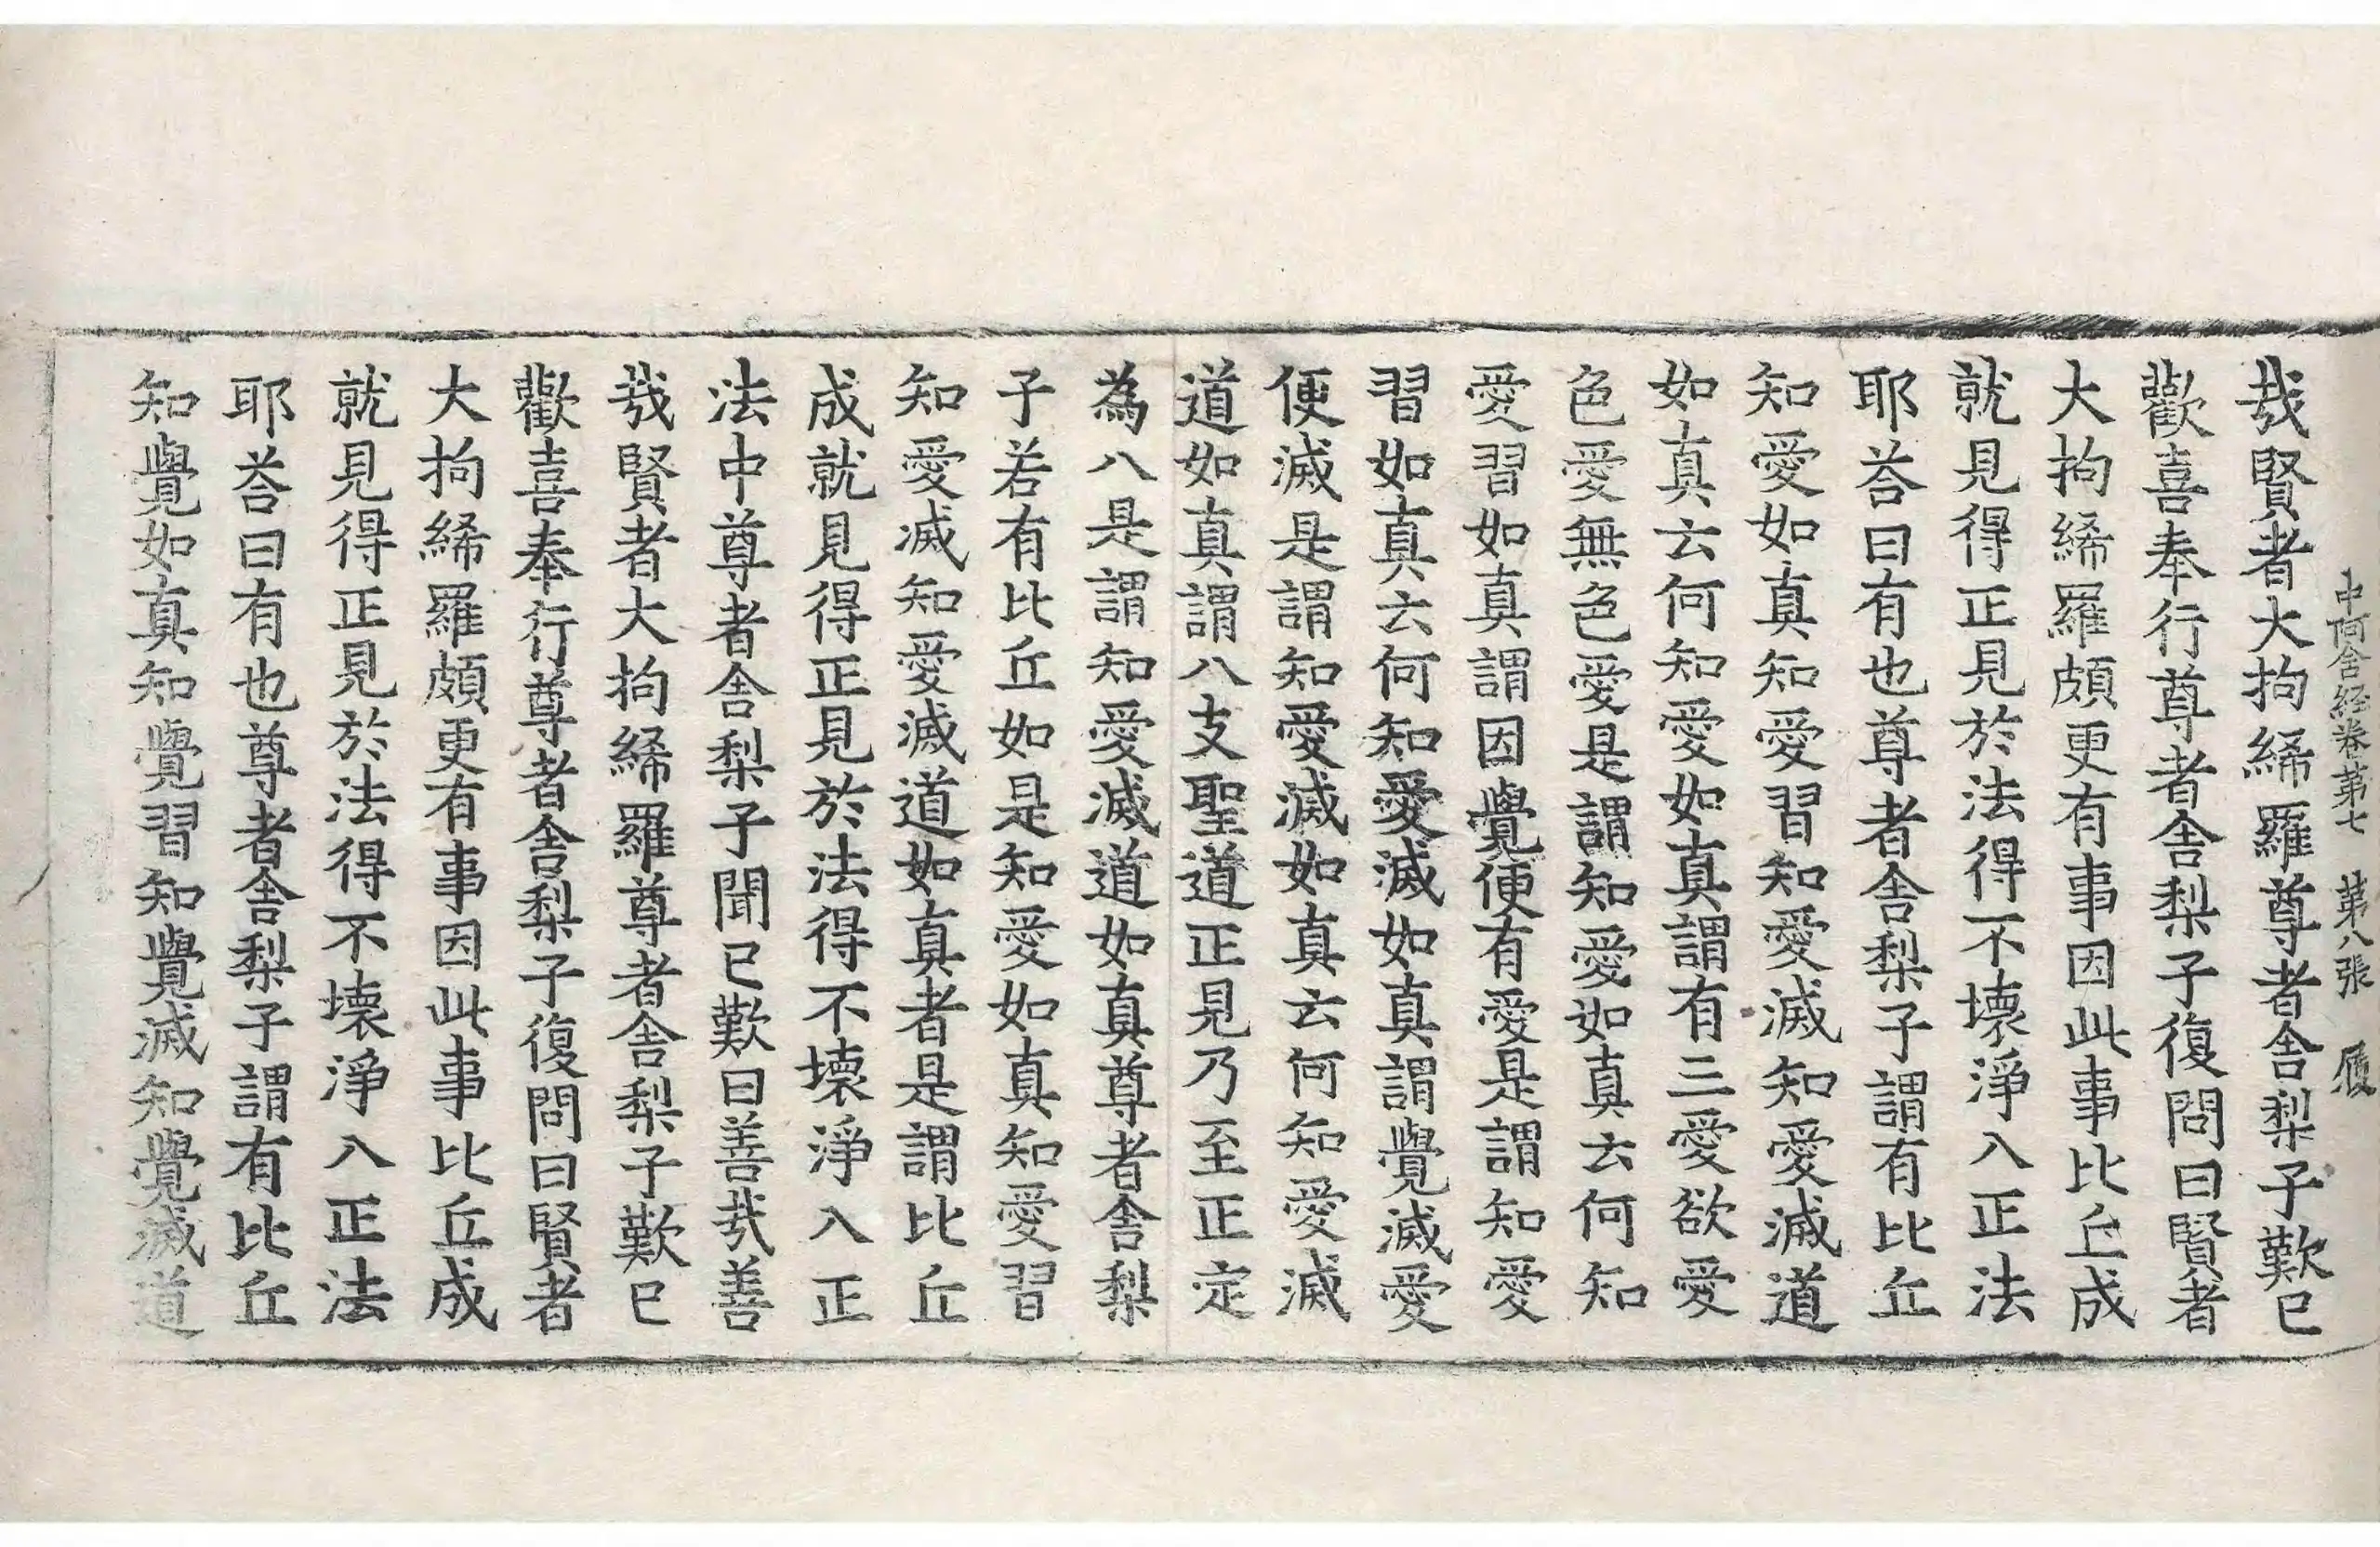 中阿含経卷第七 第八張 履
㢤賢者大拘絺羅尊者舍梨子歎已
歡喜奉行尊者舍梨子復問曰賢者
大拘絺羅頗更有事因此事比丘成
就見得正見於法得不壞淨入正法
耶荅曰有也尊者舍梨子謂有比丘
知愛如真知愛習知愛滅知愛滅道
如真云何知愛如真謂有三愛欲愛
色愛無色愛是謂知愛如真云何知
愛習如真謂因覺便有愛是謂知愛
習如真云何知愛滅如真謂覺滅愛
便滅是謂知愛滅如真云何知愛滅
道如真謂八支聖道正見乃至正定
為八是謂知愛滅道如真尊者舍梨
子若有比丘如是知愛如真知愛習
知愛滅知愛滅道如真者是謂比丘
成就見得正見於法得不壞淨入正
法中尊者舍梨子聞已歎曰善㢤善
㢤賢者大拘絺羅尊者舍梨子歎已
歡喜奉行尊者舍梨子復問曰賢者
大拘絺羅頗更有事因此事比丘成
就見得正見於法得不壞淨入正法
耶荅曰有也尊者舍梨子謂有比丘
知覺如真知覺習知覺滅知覺滅道